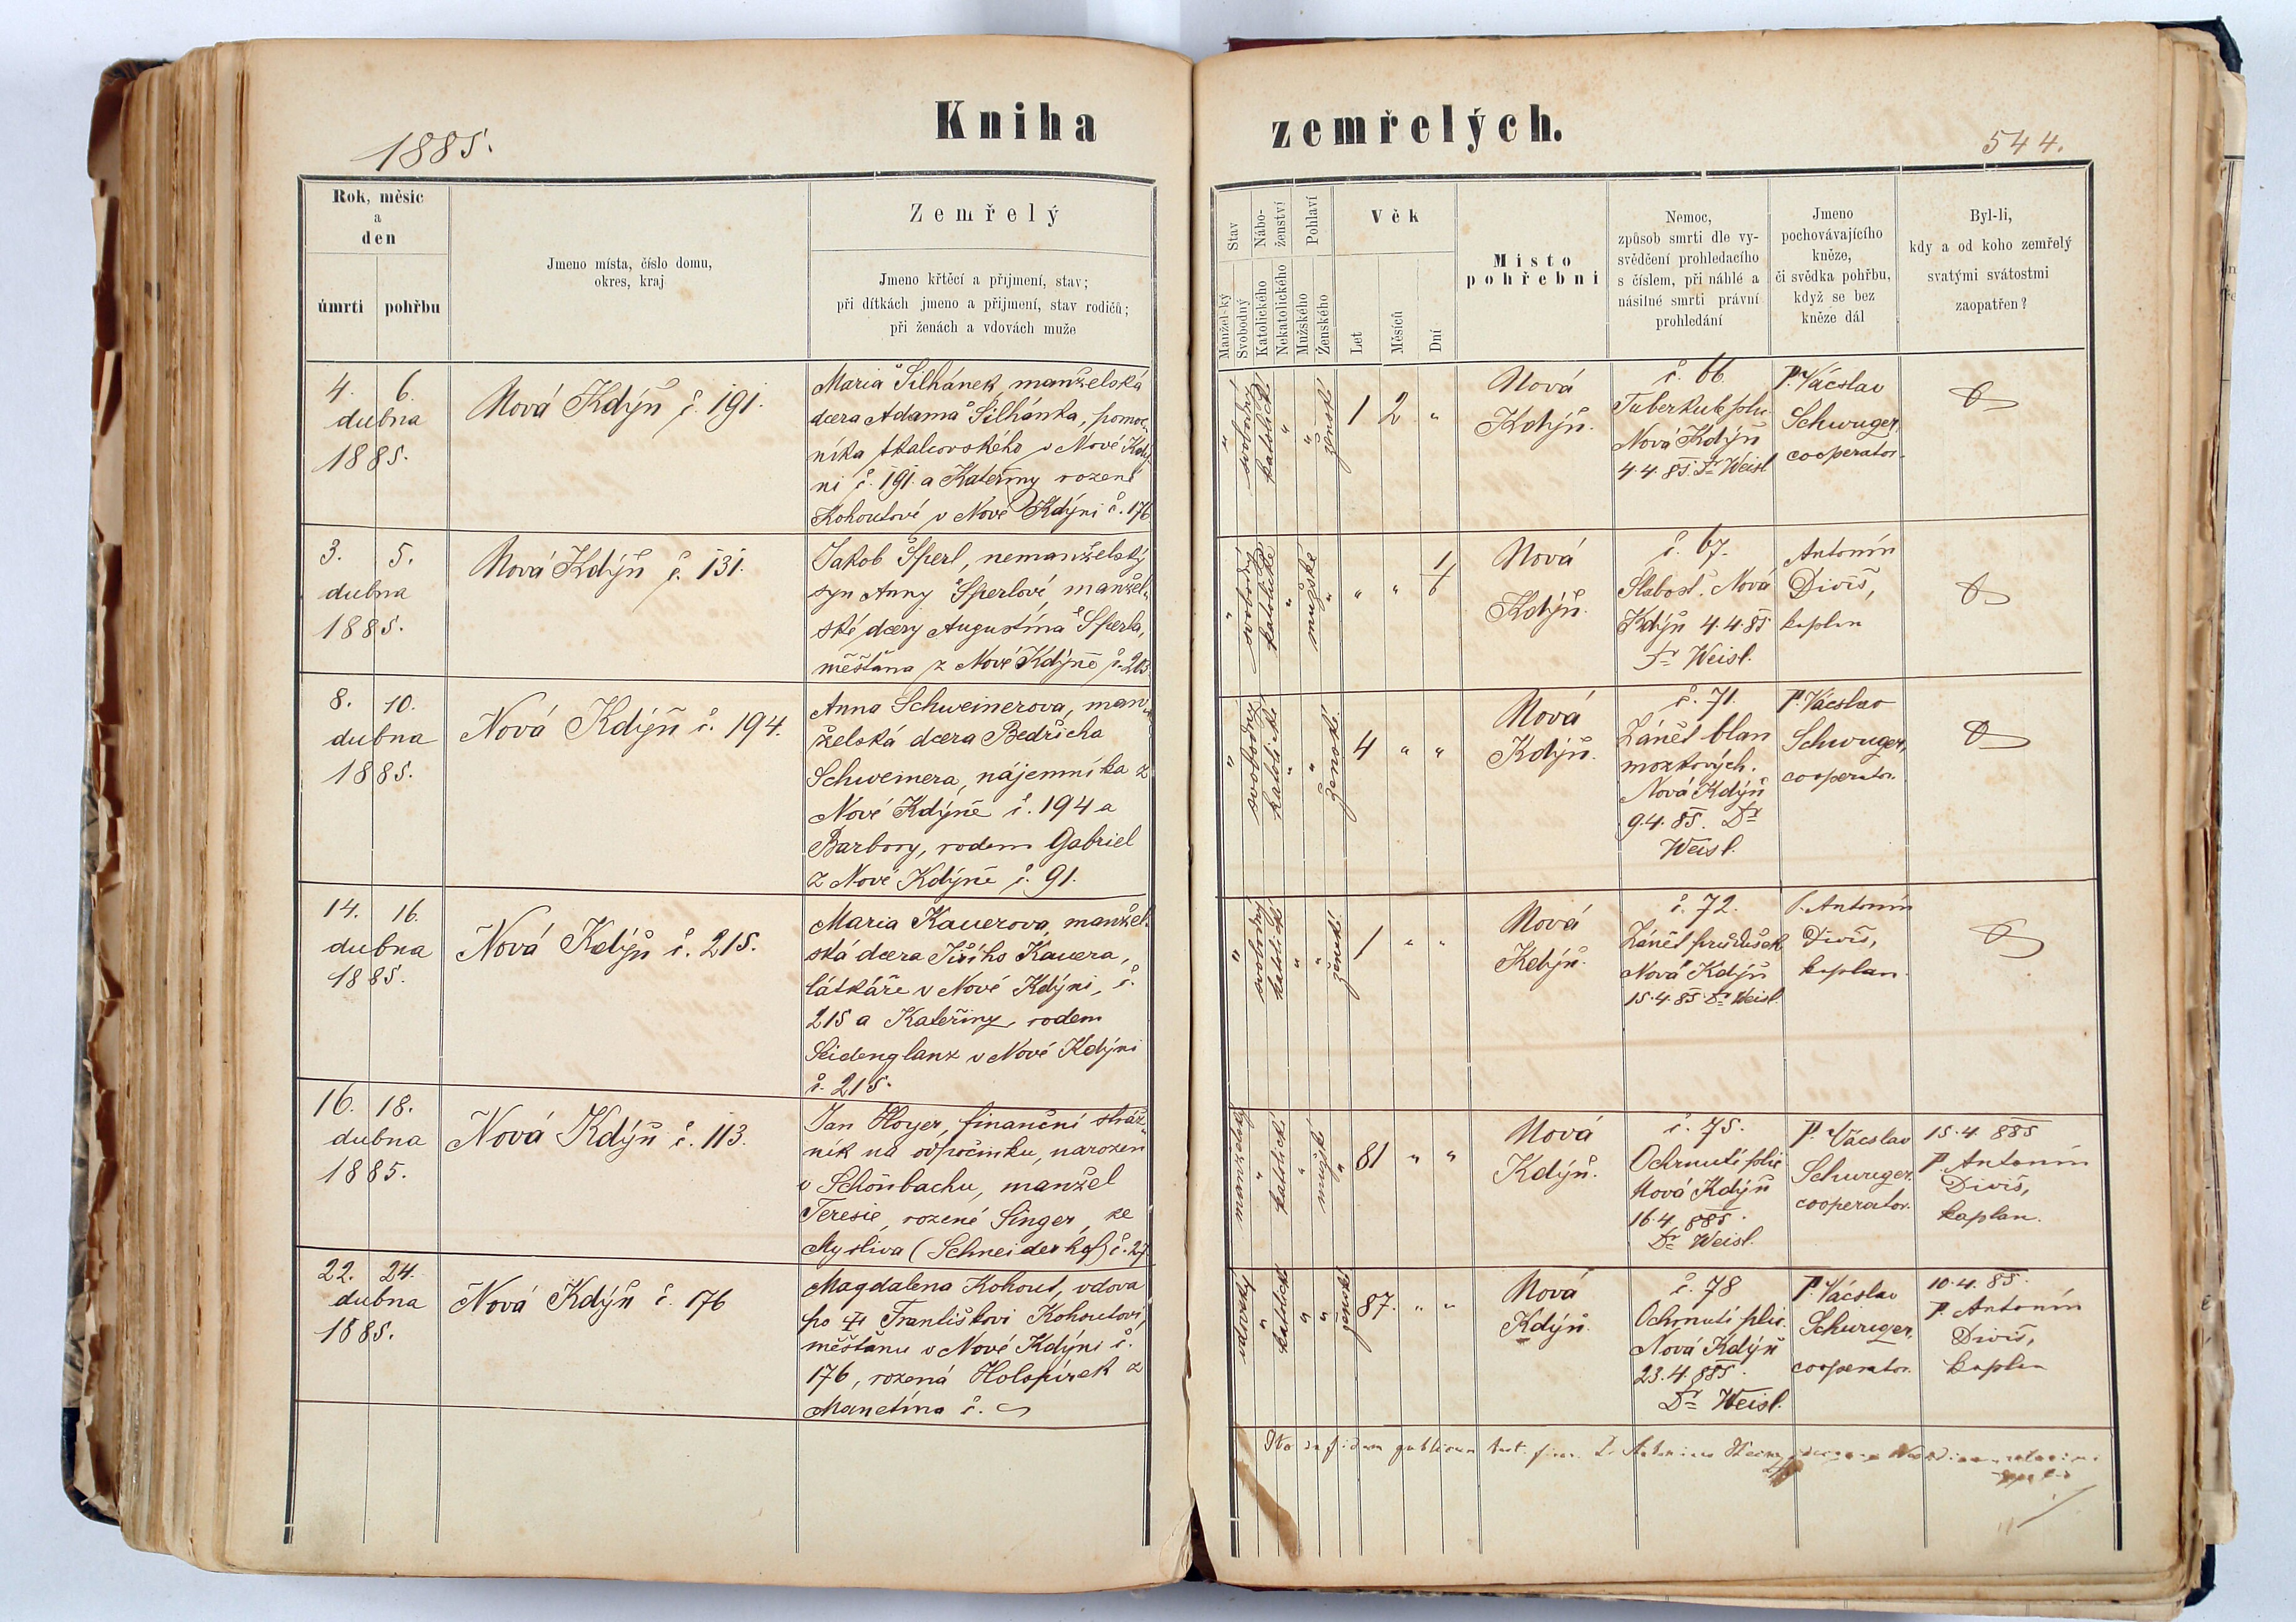 1885.
Kniha zemřelých.
544.
Rok, měsíc
a
den
úmrtí
pohřbu
Jmeno místa, číslo domu,
okres, kraj
Zemřelý
Jmeno křtěcí a přijmení, stav;
při dítkách jmeno a přijmení, stav rodičů;
při ženách a vdovách muže
Stav
Manželský
Svobodný
Náboženství
Katolického
Nekatolického
Pohlaví
Mužského
Ženského
Věk
Let
Měsíců
Dní
Místo
pohřební
Nemoc,
způsob smrti dle vy-
svědčení prohledacího
s číslem, při náhlé a
násilné smrti právní
prohledání
Jmeno
pochovávajícího
kněze,
či svědka pohřbu,
když se bez
kněze dál
Byl-li,
kdy a od koho zemřelý
svatými svátostmi
zaopatřen?
4. 6.
dubna
1885.
Nová Kdýň č. 191.
Maria Šilhánek, manželská
dcera Adama Šilhánka, pomoc-
níka tkalcovského v Nové Kdý
ni č. 191. a Kateřiny rozené
Kohoutové v Nové Kdýni č. 176
" svobodný
katolické "
" ženské
1 2 "
Nová
Kdýň.
č. 66
Tuberkule plic
Nová Kdýň
4.4.85. Dr Weisl
P. Václav
Schwuger,
cooperator.
3. 5.
dubna
1885.
Nová Kdýň č. 131.
Jakob Šperl, nemanželský
syn Anny Šperlové manžel-
ské dcery Augustína Šperla,
měšťana z Nové Kdýně č. 203.
" svobodný
katolické "
mužské "
" " 1/6
Nová
Kdýň.
č. 67.
Slabost. Nová
Kdýň 4.4.85
Dr Weisl.
Antonín
Diviš,
kaplan
8. 10.
dubna
1885.
Nová Kdýň č. 194.
Anna Schweinerova, man-
želská dcera Bedřicha
Schweinera, nájemníka z
Nové Kdýně č. 194 a
Barbory, rodem Gabriel
z Nové Kdýně č. 91.
" svobodný
katolické "
" ženské.
4 " "
Nová
Kdýň.
č. 71.
Zánět blan
mozkových.
Nová Kdýň
9.4.85. Dr
Weisl.
P. Václav
Schwuger,
cooperator.
14. 16.
dubna
1885.
Nová Kdýň č. 215.
Maria Kauerova, manžel-
ská dcera Jiřího Kauera,
látkáře v Nové Kdýni, č.
215 a Kateřiny, rodem
Seidenglanz v Nové Kdýni
č. 215.
" svobodný
katolické "
" ženské.
1 " "
Nová
Kdýň.
č. 72.
Zánět průdušek
Nová Kdýň
15.4.85 Dr Weisl.
P. Antonín
Diviš,
kaplan.
16. 18.
dubna
1885.
Nová Kdýň č. 113.
Jan Hoyer, finanční stráž-
ník na odpočinku, narozen
v Schönbachu, manžel
Teresie, rozené Singer, ze
Mysliva (Schneiderhof) č. 27.
manželský "
katolické "
mužské "
81 " "
Nová
Kdýň.
č. 75.
Ochrnutí plic
Nová Kdýň
16.4.885.
Dr Weisl.
P. Václav
Schwuger,
cooperator.
15.4.885
P. Antonín
Diviš,
kaplan.
22. 24.
dubna
1885.
Nová Kdýň č. 176
Magdalena Kohout, vdova
po Františkovi Kohoutovi,
měšťanu v Nové Kdýni č.
176, rozená Holspírek z
Manetína č.
vdovský "
katolické "
" ženské
87. " "
Nová
Kdýň.
č. 78
Ochrnutí plic.
Nová Kdýň
23.4.885.
Dr Weisl.
P. Václav
Schwuger,
cooperator.
10.4.85.
P. Antonín
Diviš,
kaplan